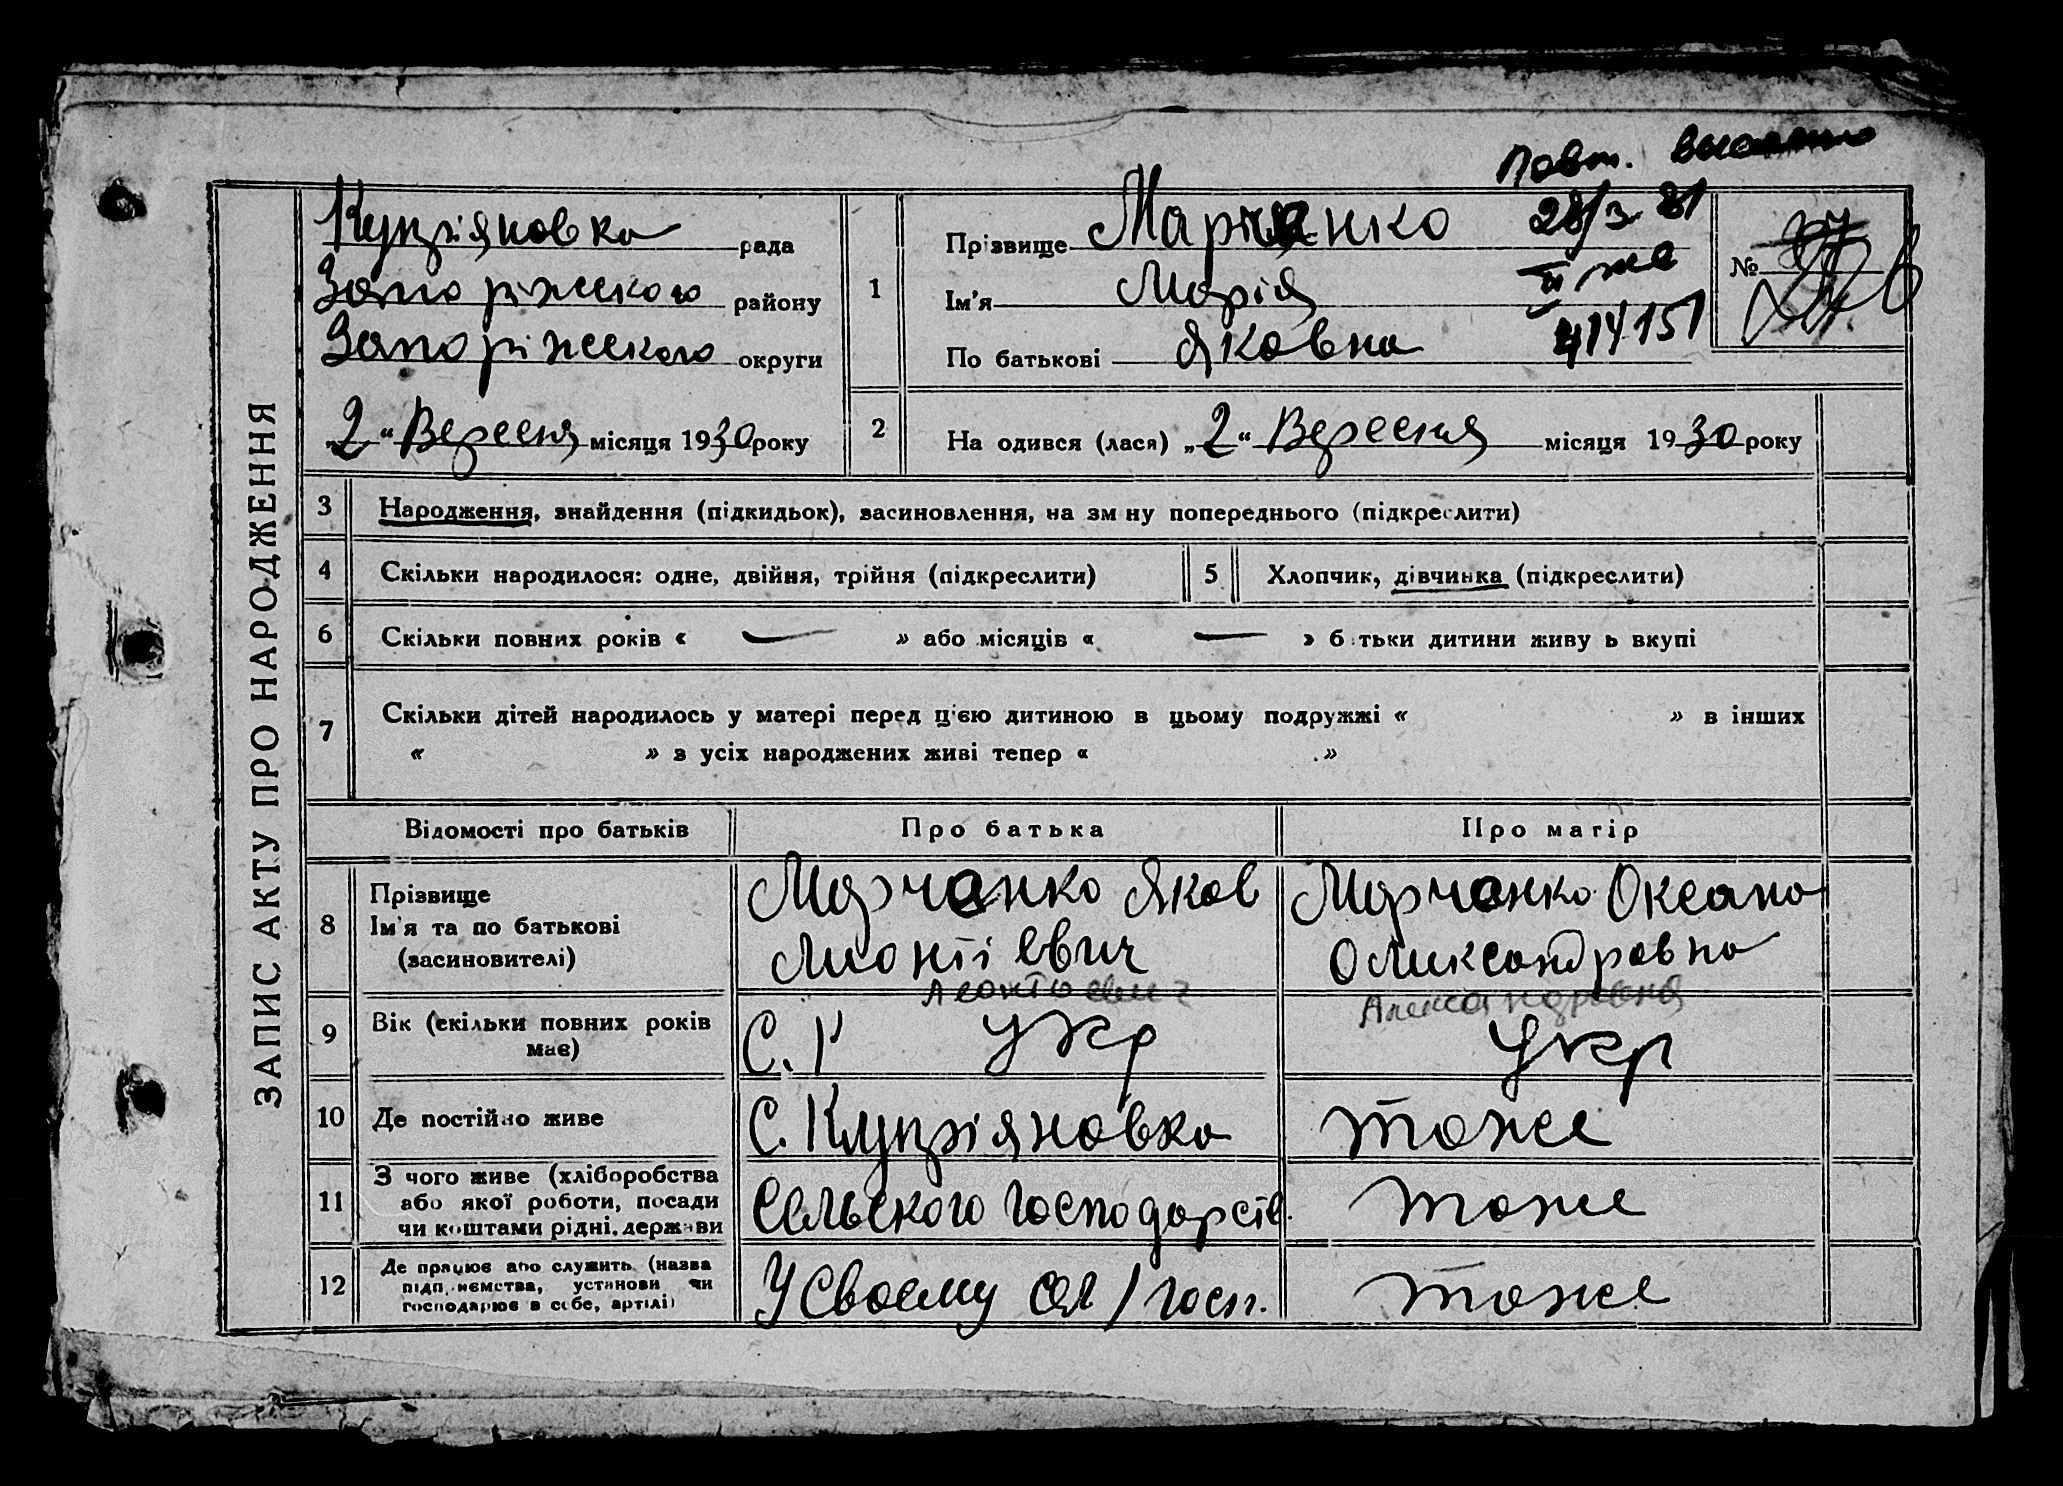 Повт. выслано
ЗАПИС АКТУ ПРО НАРОДЖЕННЯ
Купріяновка рада
Запоріжського району
Запоріжського округи
„2“ Вересня місяця 1930 року
1
Прізвище Марченко
Ім'я Марія
По батькові Яковна
28/3 81
ІІ жа
414151
№
2
На одився (лася) „2“ Вересня місяця 1930 року
3 Народження, знайдення (підкидьок), васиновлення, на зм ну попереднього (підкреслити)
4 Скільки народилося: одне, двійня, трійня (підкреслити) 5 Хлопчик, дівчинка (підкреслити)
6 Скільки повних років « — » або місяців « — » б тьки дитини живу ь вкупі
7 Скільки дітей народилось у матері перед цією дитиною в цьому подружжі « » в інших
« » з усіх народжених живі тепер « »
Відомості про батьків Про батька Про матір
8 Прізвище
Ім'я та по батькові
(засиновителі)
Марченко Яков
Лионтієвич
Леонтиевич
Марченко Оксана
Оликсандровна
Александровна
9 Вік (скільки повних років має)
С. Г укр
укр
10 Де постійно живе
С. Купріяновка
тоже
11 З чого живе (хліборобства
або якої роботи, посади
чи коштами рідні, держави
Сельского господарств.
тоже
12 Де працює або служить (назва
підприємства, установи чи
господарює в себе, артілі)
У своєму сел/госп.
тоже